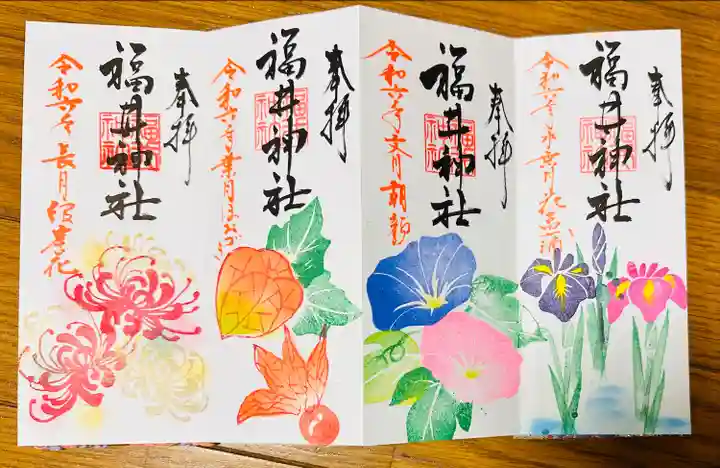 奉拝
福井神社
令和六年水無月花菖蒲
奉拝
福井神社
令和六年文月朝顔
奉拝
福井神社
令和六年葉月ほおずき
奉拝
福井神社
令和六年長月彼岸花